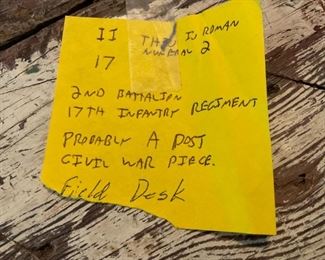 II THIS IS ROMAN
NUMERAL 2
17
2ND BATTALION
17TH INFANTRY REGIMENT
PROBABLY A POST
CIVIL WAR PIECE.
Field Desk